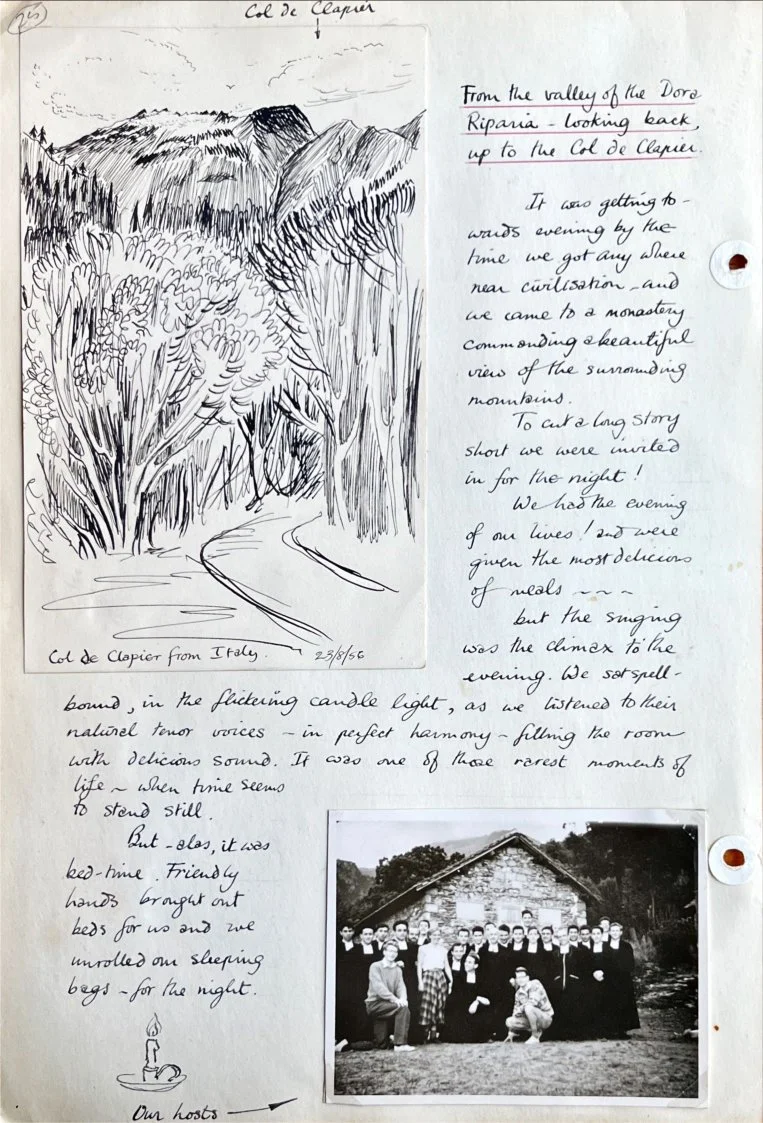 25
Col de Clapier
From the valley of the Dora
Riparia - looking back,
up to the Col de Clapier.
It was getting to-
wards evening by the
time we got any where
near civilisation - and
we came to a monastery
commanding a beautiful
view of the surrounding
mountains.
To cut a long story
short we were invited
in for the night!
We had the evening
of our lives! and were
given the most delicious
of meals ~ ~ ~
but the singing
was the climax to the
evening. We sat spell-
Col de Clapier from Italy. 23/8/56
bound, in the flickering candle light, as we listened to their
natural tenor voices - in perfect harmony - filling the room
with delicious sound. It was one of those rarest moments of
life ~ when time seems
to stand still.
But - alas, it was
bed-time. Friendly
hands brought out
beds for us and we
unrolled our sleeping
bags - for the night.
Our hosts